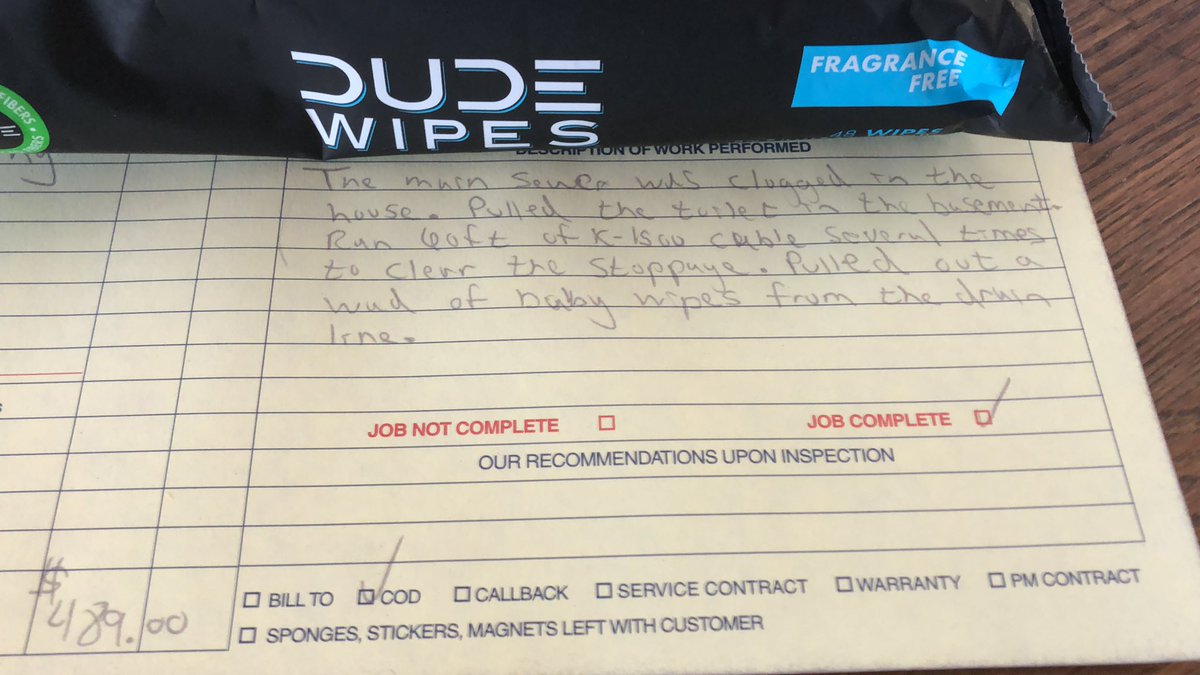 DUDE
WIPES
FRAGRANCE
FREE
48 WIPES
FIBERS
DESCRIPTION OF WORK PERFORMED
The main sewer was clogged in the
house. Pulled the toilet in the basement.
Run 60ft of K-1500 cable several times
to clear the stoppage. Pulled out a
wad of baby wipes from the drain
line.
JOB NOT COMPLETE
JOB COMPLETE
OUR RECOMMENDATIONS UPON INSPECTION
BILL TO COD CALLBACK SERVICE CONTRACT WARRANTY PM CONTRACT
SPONGES, STICKERS, MAGNETS LEFT WITH CUSTOMER
$489.00